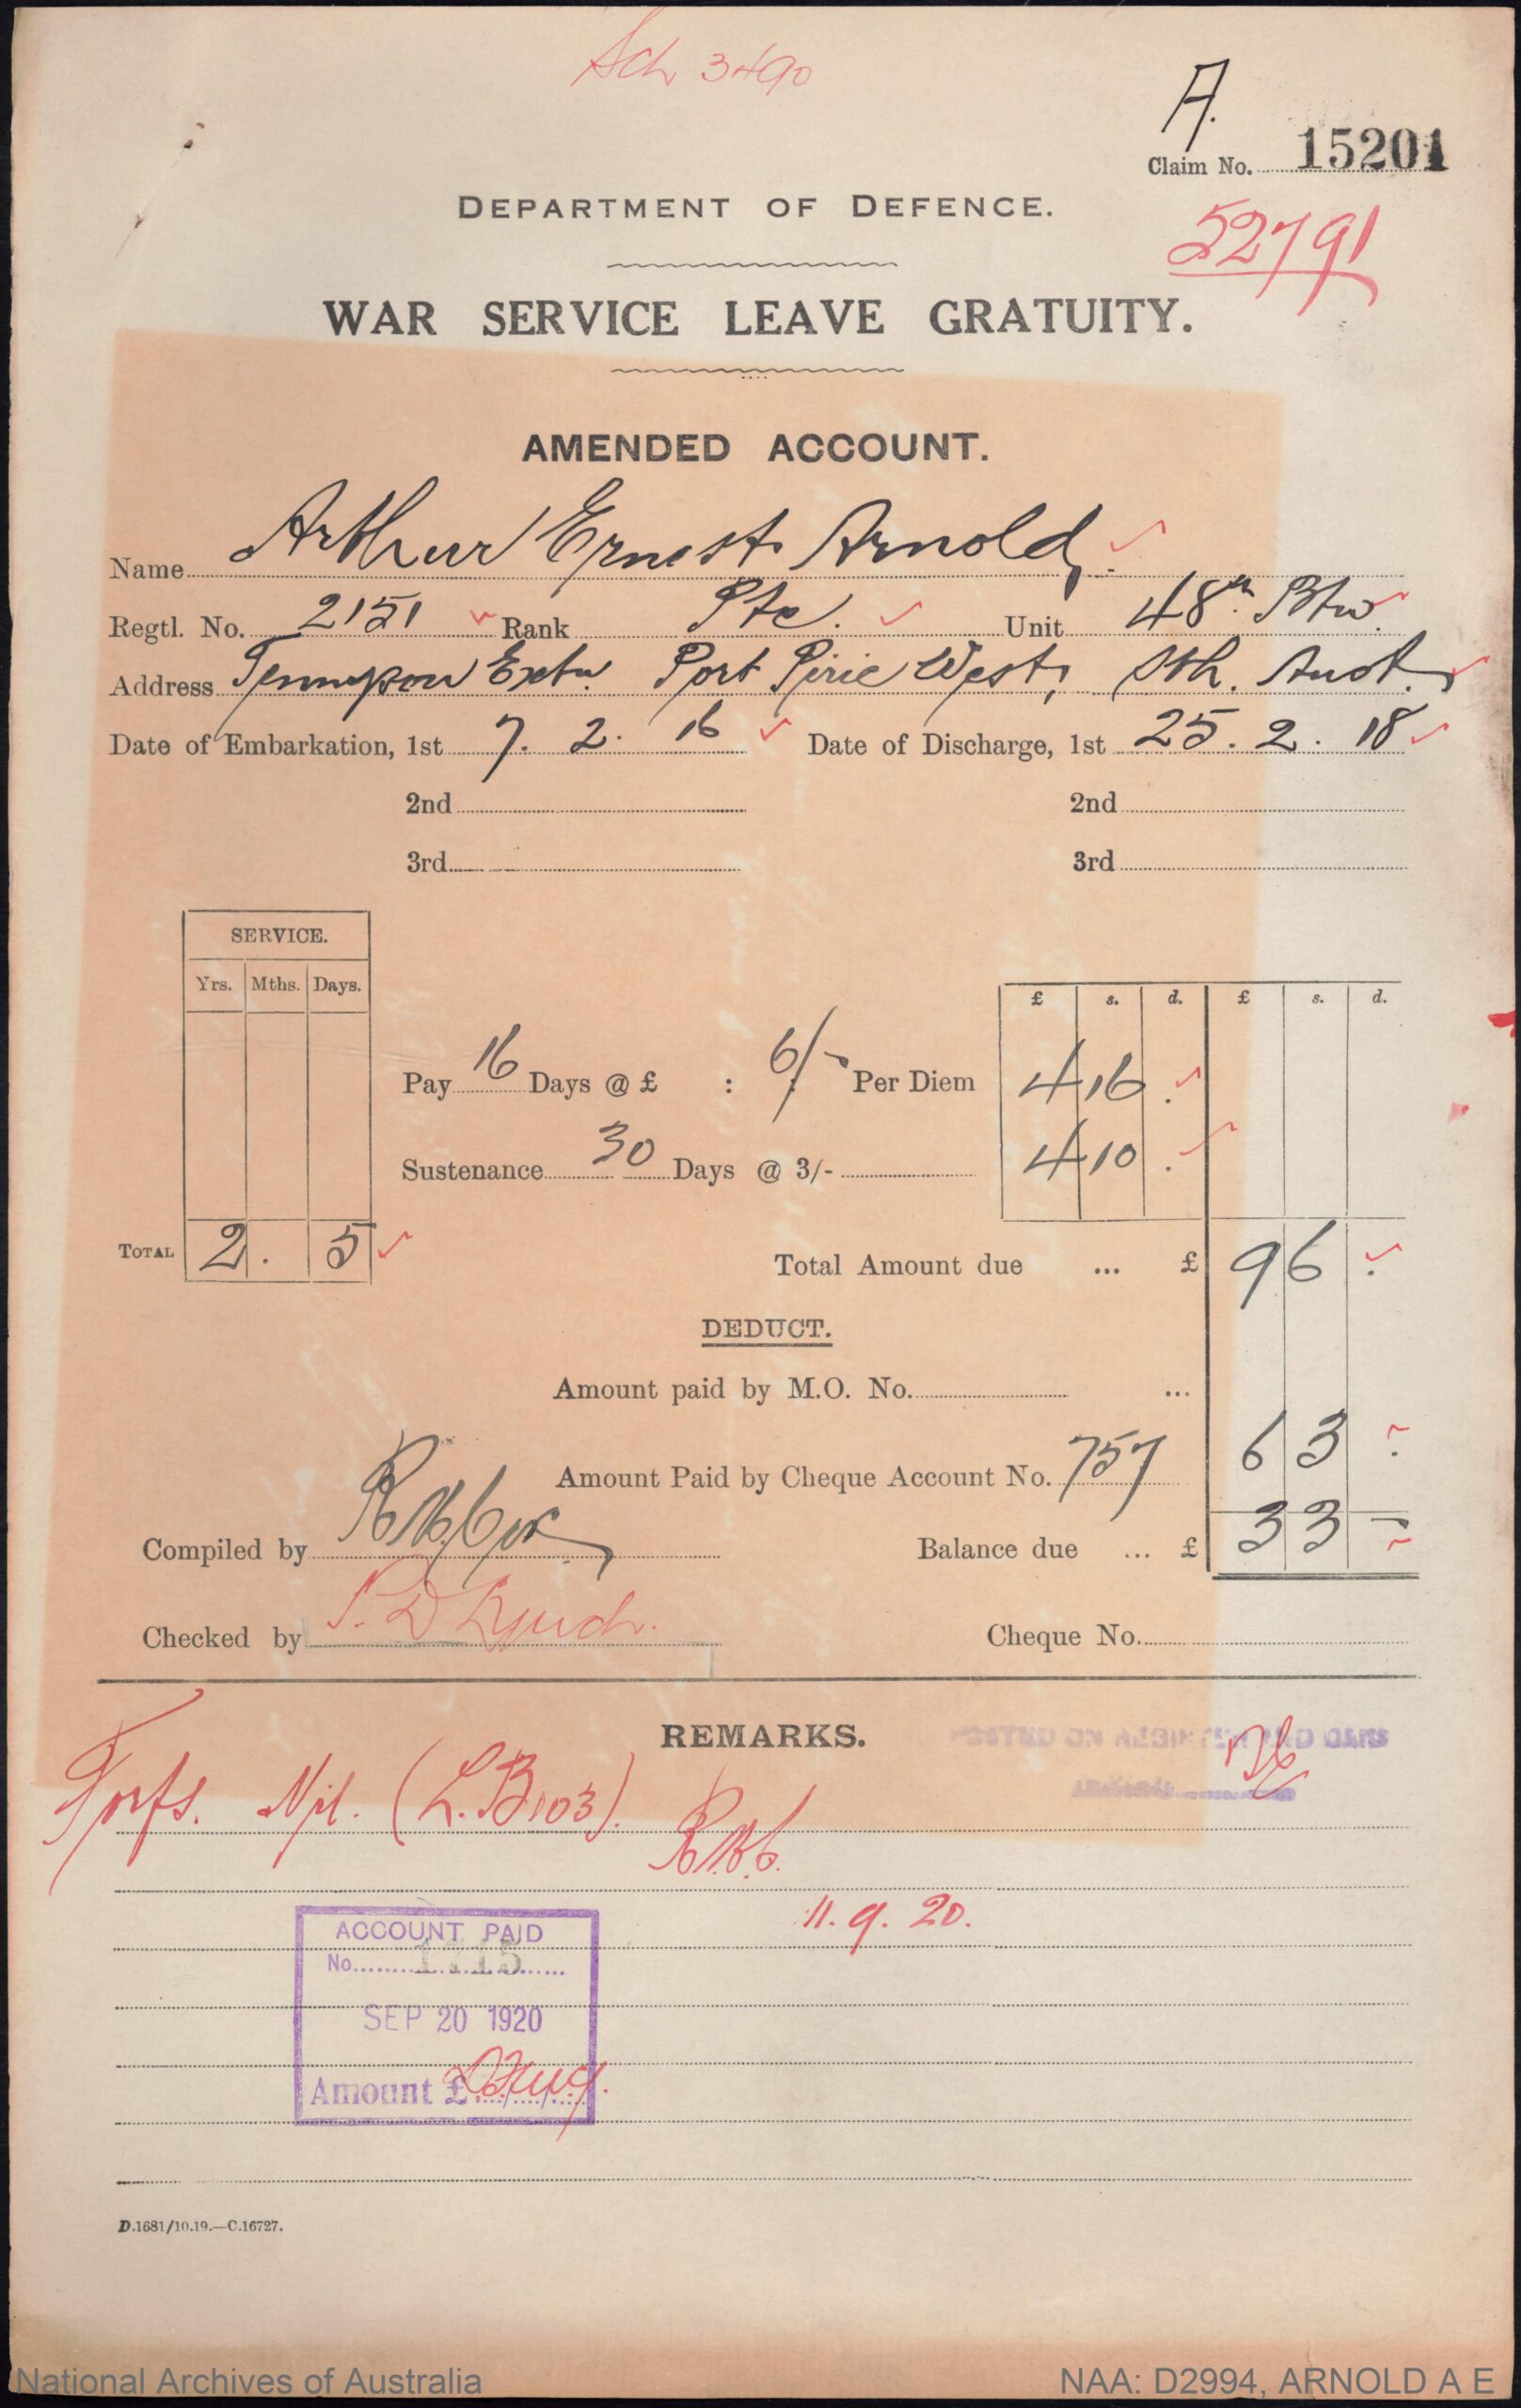 Sch 3490
A.
Claim No. 15201
DEPARTMENT OF DEFENCE.
52791
WAR SERVICE LEAVE GRATUITY.
AMENDED ACCOUNT.
Name Arthur Ernest Arnold.
Regtl. No. 2151 Rank Pte. Unit 48th Btn.
Address Tennyson Extn. Port Pirie West, Sth. Aust.
Date of Embarkation, 1st 7. 2. 16 Date of Discharge, 1st 25. 2. 18
2nd 2nd
3rd 3rd
SERVICE.
Yrs. Mths. Days.
£ s. d. £ s. d.
Pay 16 Days @ £ : 6/- Per Diem 4 16 .
Sustenance 30 Days @ 3/- 4 10 .
TOTAL 2. 5
Total Amount due ... £ 9 6 .
DEDUCT.
Amount paid by M.O. No. ...
Amount Paid by Cheque Account No. 757 6 3 .
Compiled by
Balance due ... £ 3 3 -
Checked by Lynch.
Cheque No.
REMARKS.
POSTED ON REGISTER AND CARD
Forfs. Nil. (L.B103).
11. 9. 20.
ACCOUNT PAID
No. 1715
SEP 20 1920
Amount £
D.1681/10.19.—C.16727.
National Archives of Australia NAA: D2994, ARNOLD A E